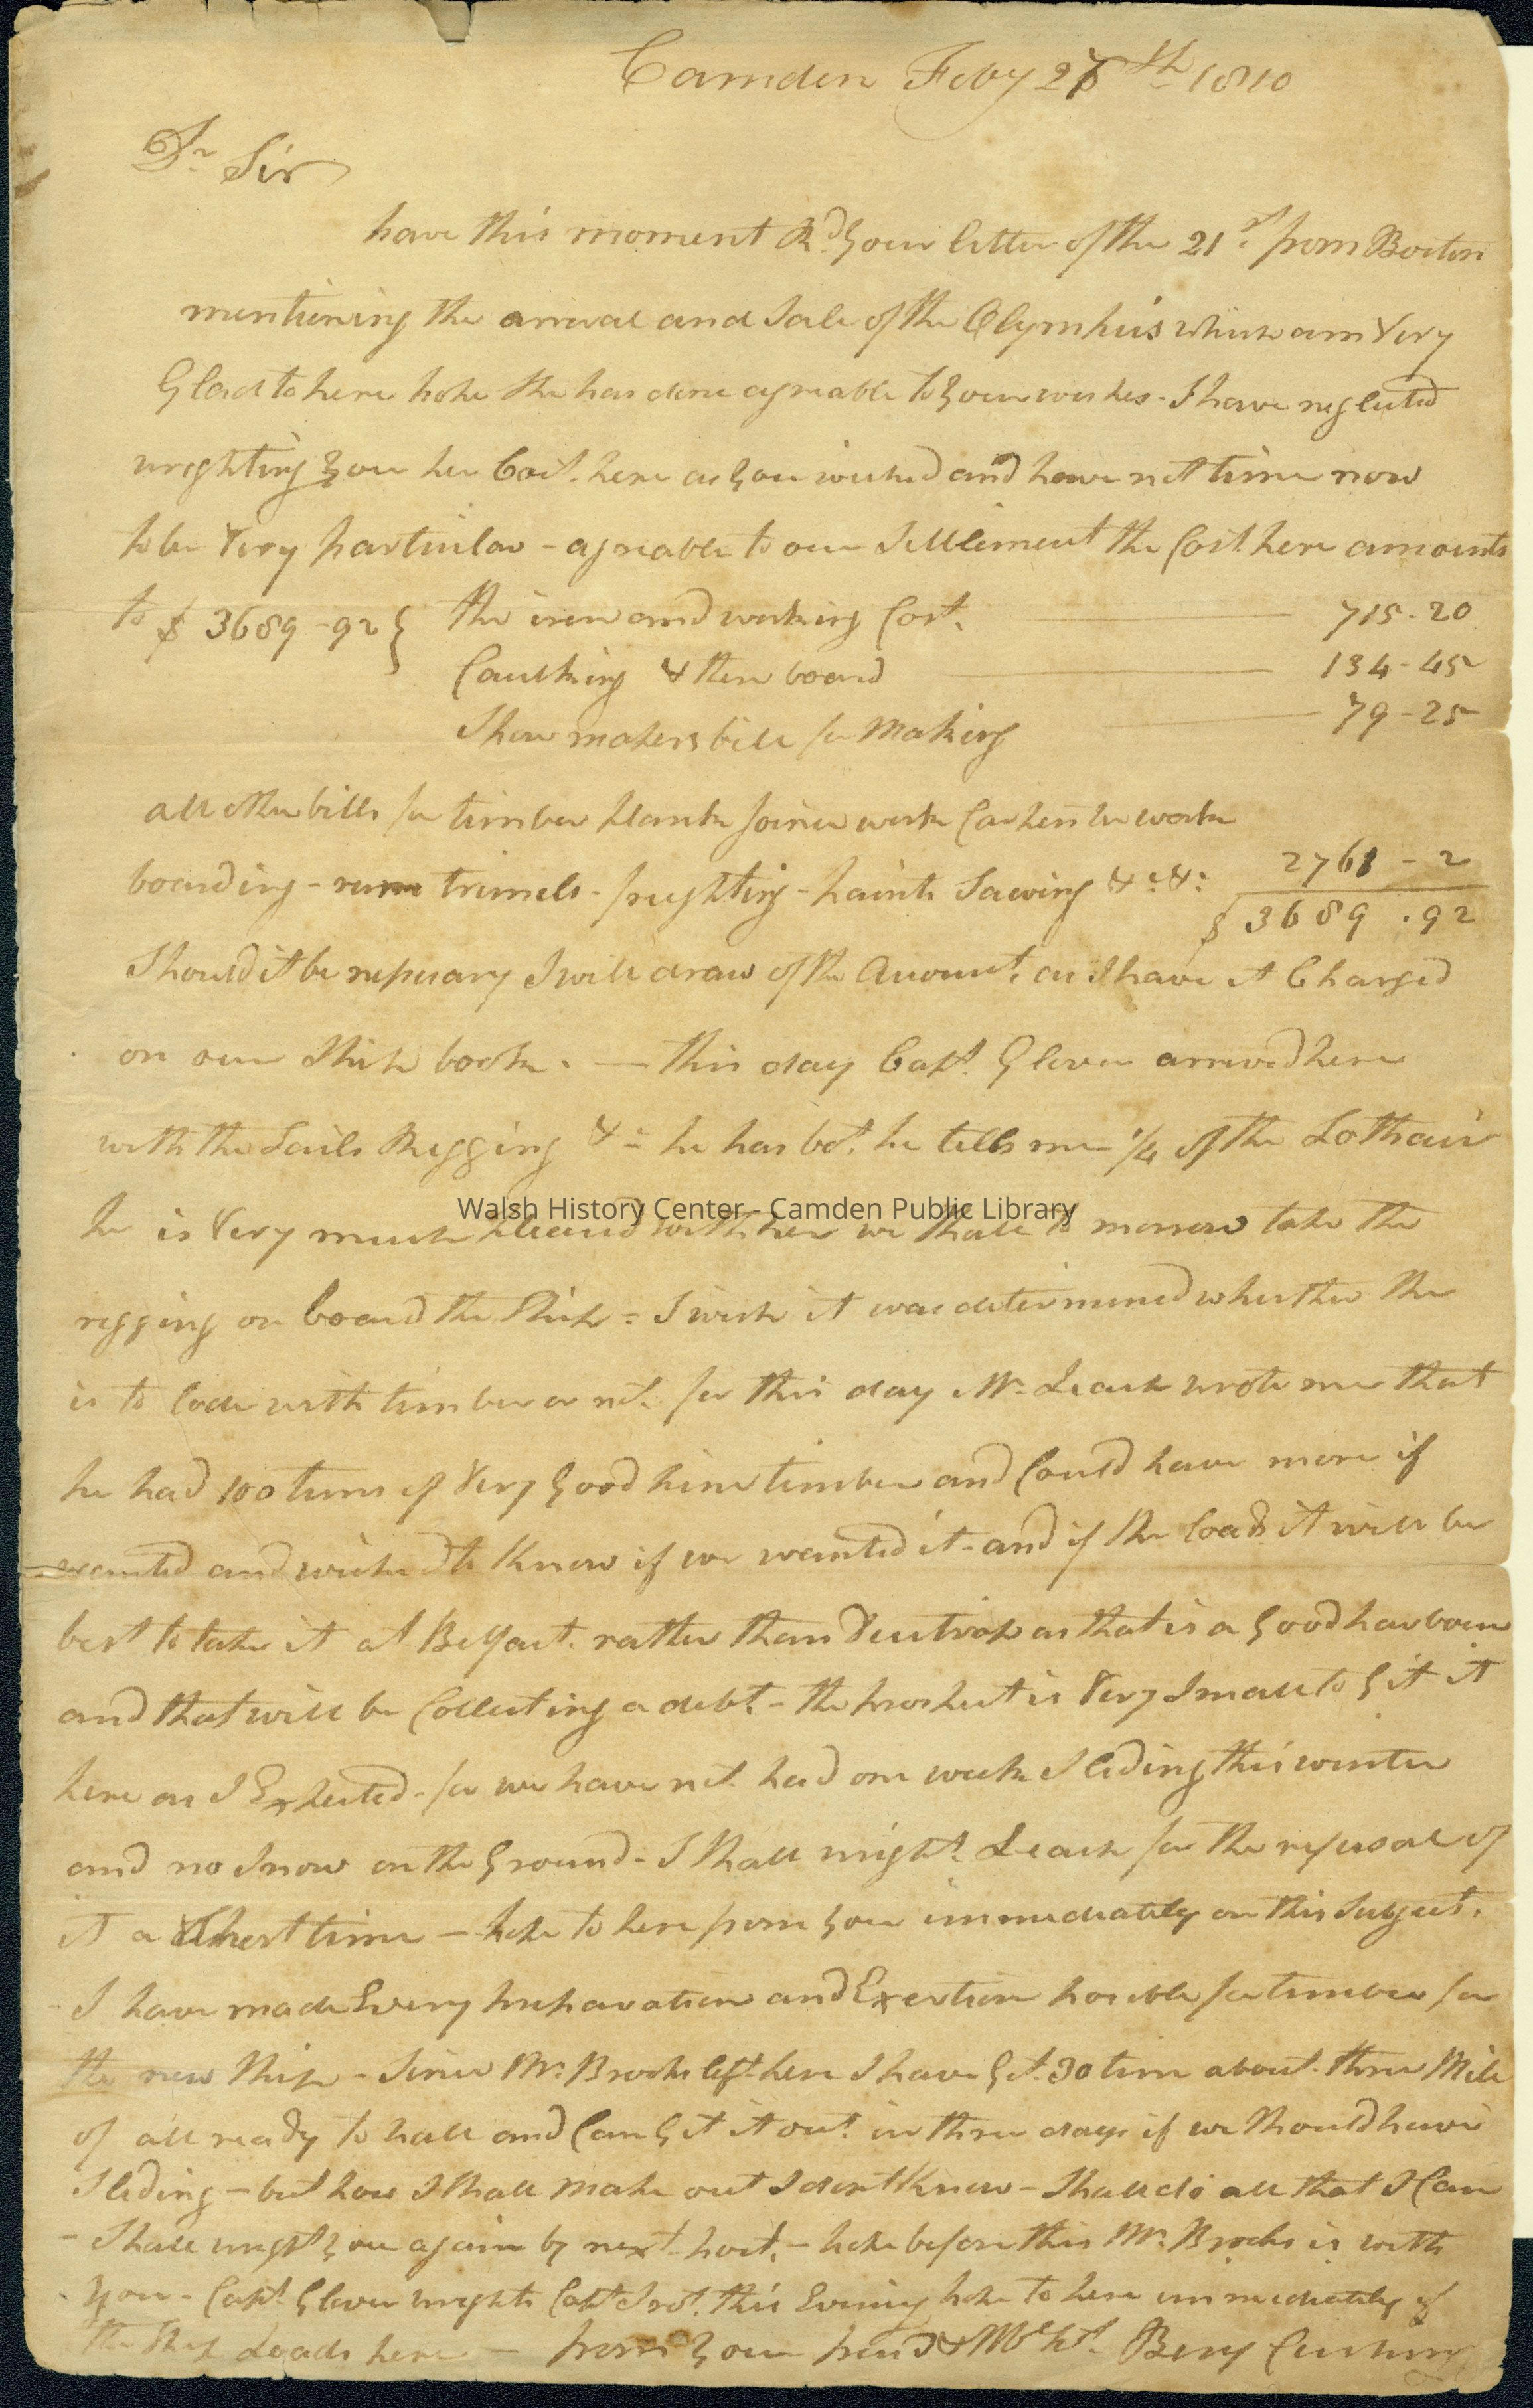 Camden Feby 26th 1810
Dr Sir
have this moment Rd your letter of the 21st from Boston
mentioning the arrival and Sale of the Olymphus which am Very
Glad to here hope She has done agreable to your wishes - I have neglected
wrighting you her Cost here as you wished and have not time now
to be Very particular - agreable to our Settlement the Cost here amounts
to $ 3689-92 { the iron and working Cost. 715-20
Caulking & then board 134-45
Show makers bill for Making 79-25
all other bills for timber plank Joiner work Carpenter work
boarding - rum trinnels - freighting - paints Sawing &c &c 2761-2
$ 3689.92
Should it be nessesary I will draw of the Account. as I have it Charged
on our Ship book. — this day Capt. Glover arrived here
with the Sails Rigging &c he has bot. he tells me 1/4 of the Lothair
Walsh History Center - Camden Public Library
he is Very much pleased with her we Shall to morrow take the
rigging on board the Ship = I wish it was determined whether She
is to lode with timber or not for this day Mr Leach wrote me that
he had 100 tuns of Very good pine timber and Could have more if
wanted and wished to Know if we wanted it - and if She loads it will be
best to take it at Belfast. rather than as that is a good harbour
and that will be Collecting a debt - the prospect is Very Small to Git it
here as I Expected - for we have not had one week Sleding this winter
and no Snow on the Ground - I Shall wright Leach for the refusal of
it a Short time — hope to here from you immediately on this Subject.
- I have made Every preparation and Exertion posible for timber for
the new Ship - Since Mr Brooks left here I have Got 30 tun about three Mile
of all ready to hall and Can Git it out in three days if we Should have
Sleding - but how I Shall make out I dont Know - Shall do all that I Can
- Shall wright you again by next post. - hope before this Mr. Brooks is with
you - Capt Glover wrights Capt this Evening hope to here immediately if
the Ship Loads here — from your frend & Benj Cushing